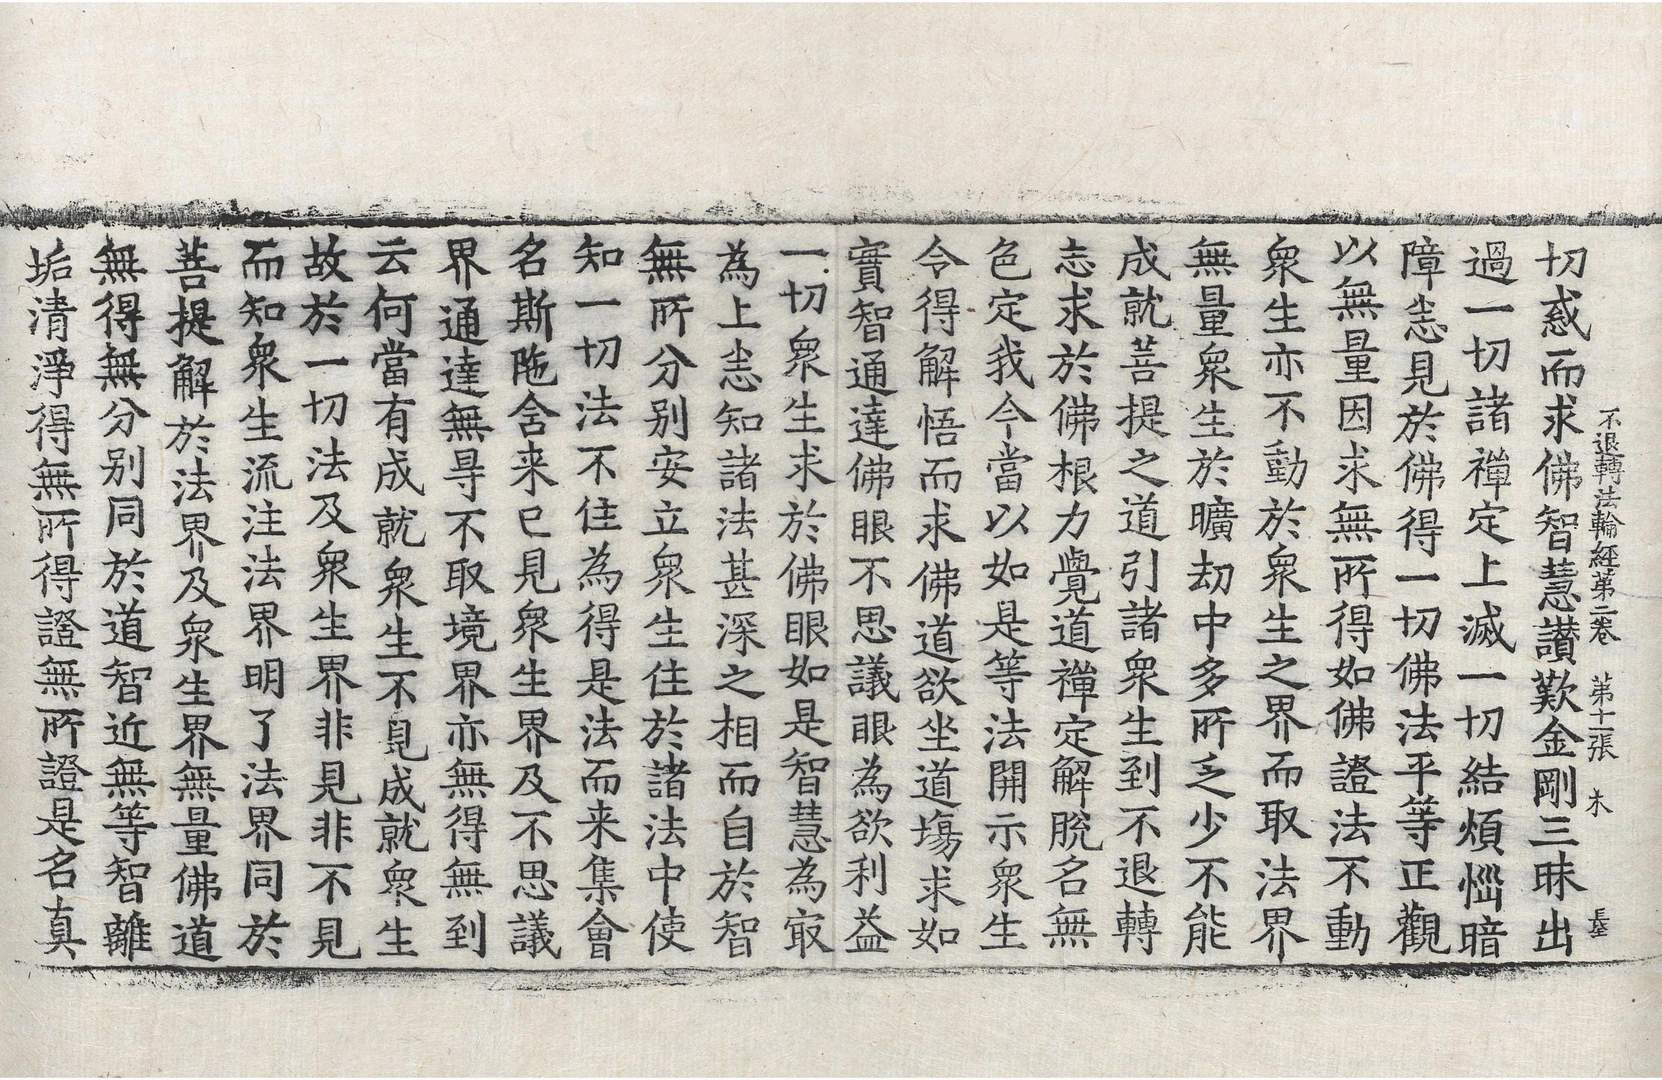 不退轉法輪經第二卷　第十二張　木
切惑而求佛智慧讃歎金剛三昧出
過一切諸禪定上滅一切結煩惱暗
障悉見於佛得一切佛法平等正觀
以無量因求無所得如佛證法不動
衆生亦不動於衆生之界而取法界
無量衆生於曠劫中多所乏少不能
成就菩提之道引諸衆生到不退轉
志求於佛根力覺道禪定解脫名無
色定我今當以如是等法開示衆生
令得解悟而求佛道欲坐道場求如
實智通達佛眼不思議眼為欲利益
一切衆生求於佛眼如是智慧為㝡
為上悉知諸法甚深之相而自於智
無所分別安立衆生住於諸法中使
知一切法不住為得是法而来集會
名斯陁含来已見衆生界及不思議
界通達無㝵不取境界亦無得無到
云何當有成就衆生不見成就衆生
故於一切法及衆生界非見非不見
而知衆生流注法界明了法界同於
菩提解於法界及衆生界無量佛道
無得無分別同於道智近無等智離
垢清淨得無所得證無所證是名真